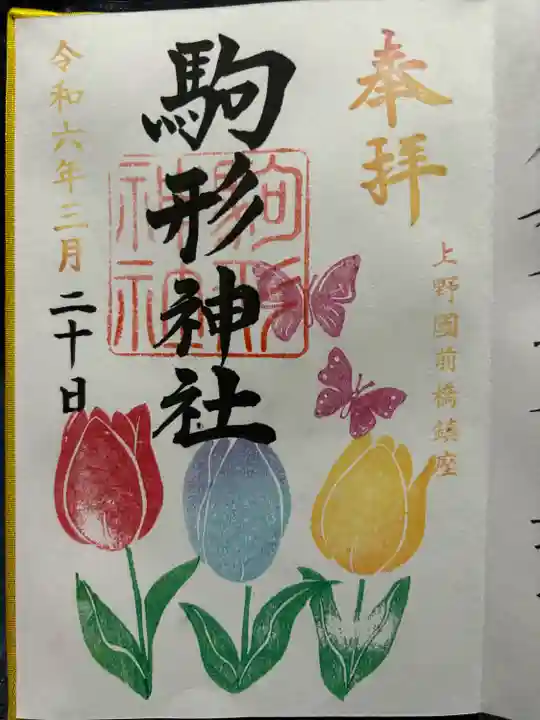 奉拝
上野國前橋鎮座
駒形神社
駒形
神社
令和六年三月二十日